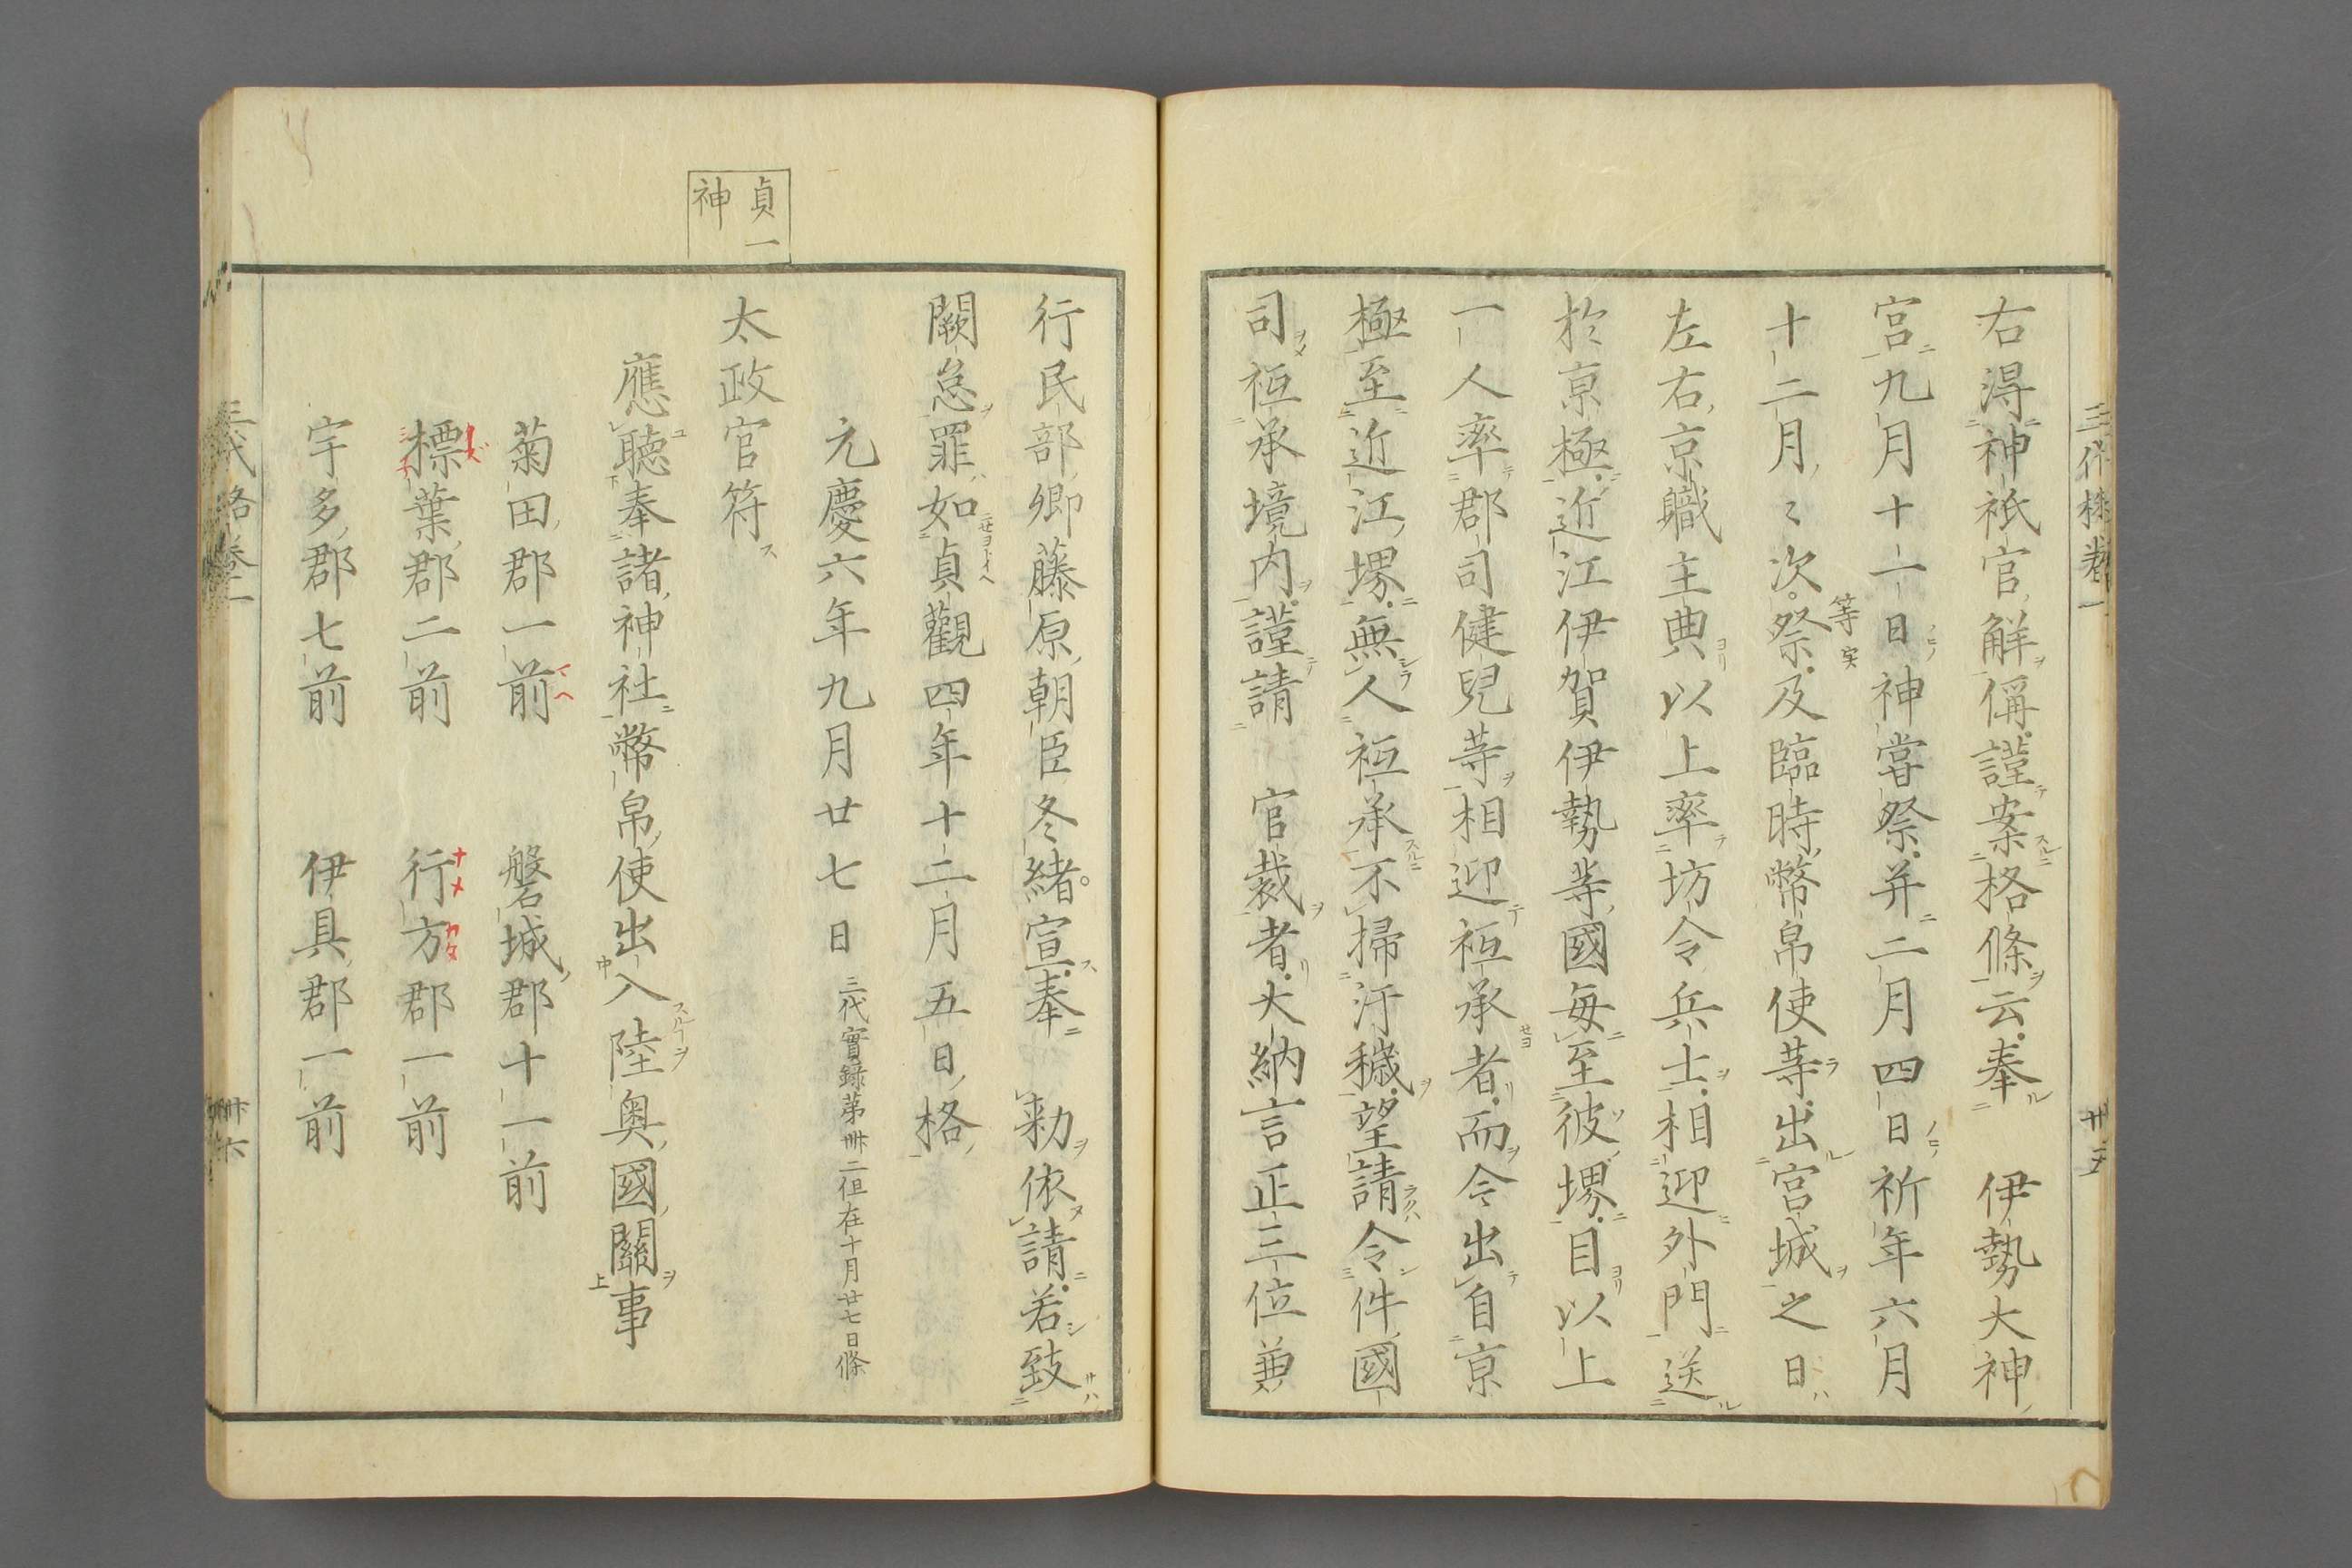 右得神祇官解偁謹案格條云奉 伊勢大神
宮九月十一日神嘗祭并二月四日祈年六月
十二月〻次祭及臨時幣帛使等出宮城之日
等実
左右京職主典以上率坊令兵士相迎外門送
於京極近江伊賀伊勢等國毎至彼堺目以上
一人率郡司健兒等相迎祗承者而今出自京
極至近江堺無人祗承不掃汙穢望請令件國
司祗承境内謹請 官裁者大納言正三位兼
行民部卿藤原朝臣冬緒宣奉 勅依請若致
闕怠罪如貞觀四年十二月五日格
元慶六年九月廿七日 三代實錄第卌二但在十月廿七日條
貞一
神
太政官符
應聽奉諸神社幣帛使出入陸奥國關事
菊田郡一前 磐城郡十一前
標葉郡二前 行方郡一前
宇多郡七前 伊具郡一前